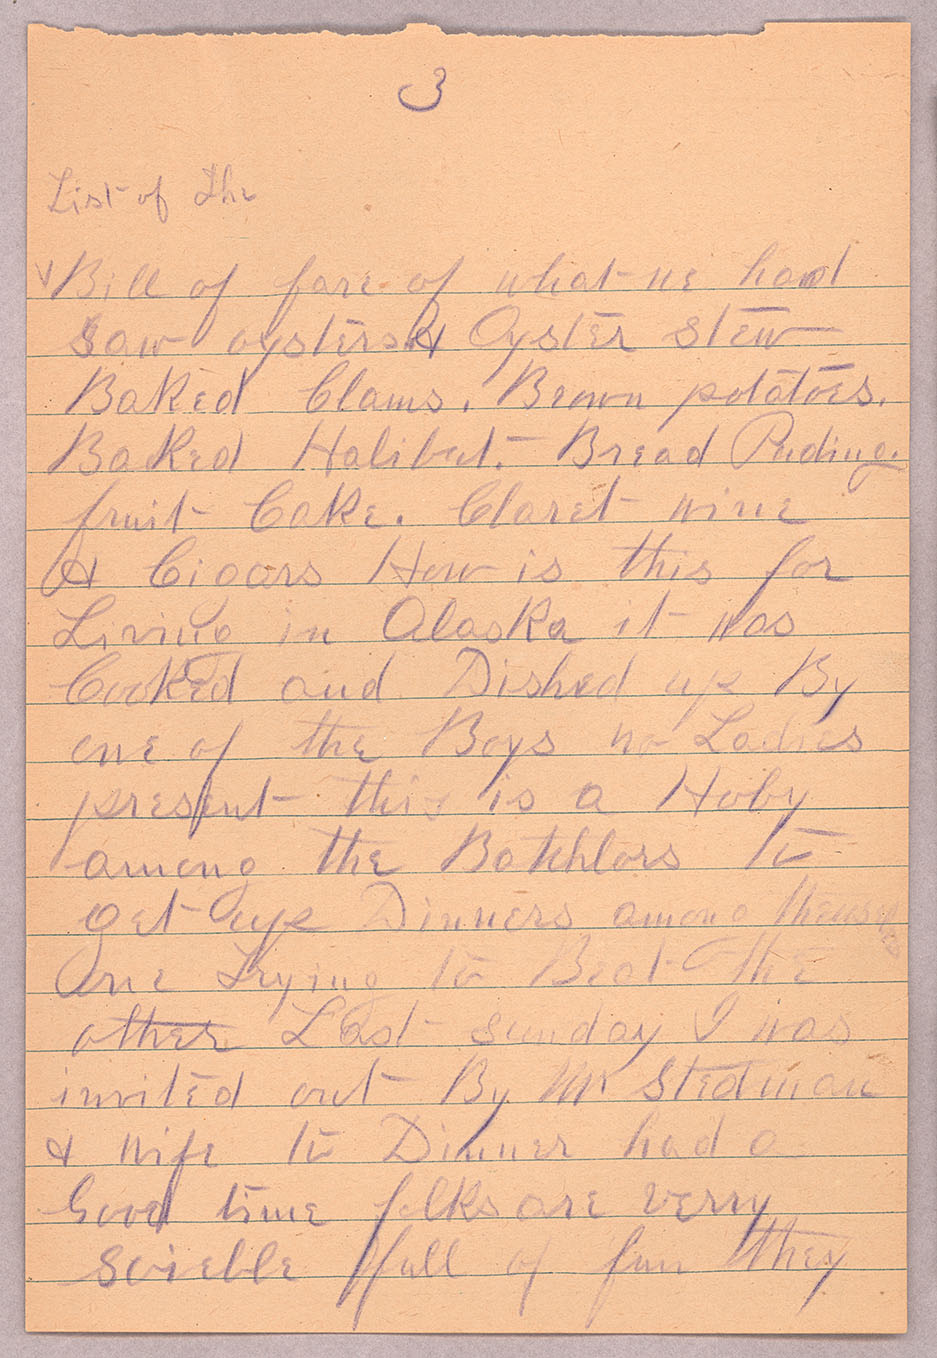 3
List of The
Bill of fare of what we had
Saw oysters & Oyster Stew
Baked Clams. Brown potatoes.
Baked Halibut. Bread Puding.
fruit Cake. Claret wine
& Cigars How is this for
Living in Alaska it was
Cooked and Dished up By
one of the Boys no Ladies
present this is a Hoby
among the Batchlors to
get up Dinners among themselves
One Trying to Beat the
other Last Sunday I was
invited out By Mr Stedman
& wife to Dinner had a
Good time folks are verry
Scieble full of fun they